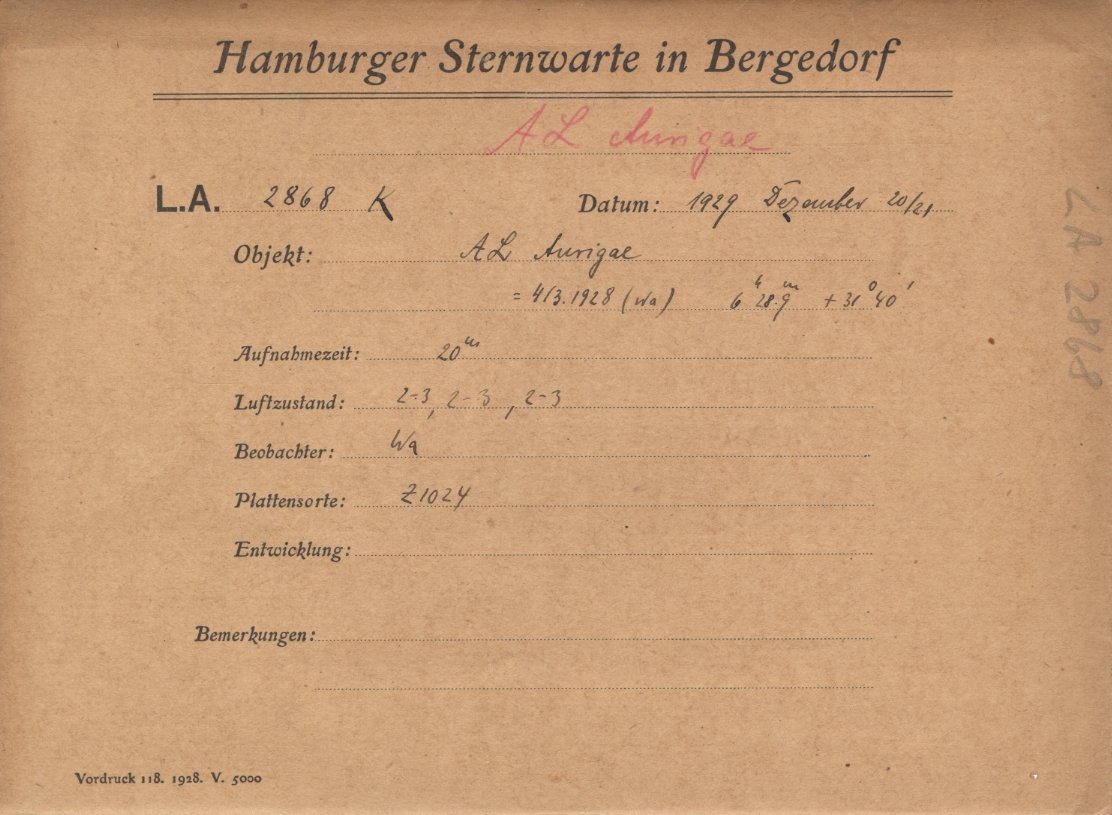 Hamburger Sternwarte in Bergedorf
AL Aurigae
L.A. 2868 K Datum: 1929 Dezember 20/21
Objekt: AL Aurigae
= 413.1928 (Wa) 6h 28.m9 + 31° 40'
Aufnahmezeit: 20m
Luftzustand: 2-3, 2-3, 2-3
Beobachter: Wa
Plattensorte: Z1024
Entwicklung:
Bemerkungen:
Vordruck 118. 1928. V. 5000
LA 2868